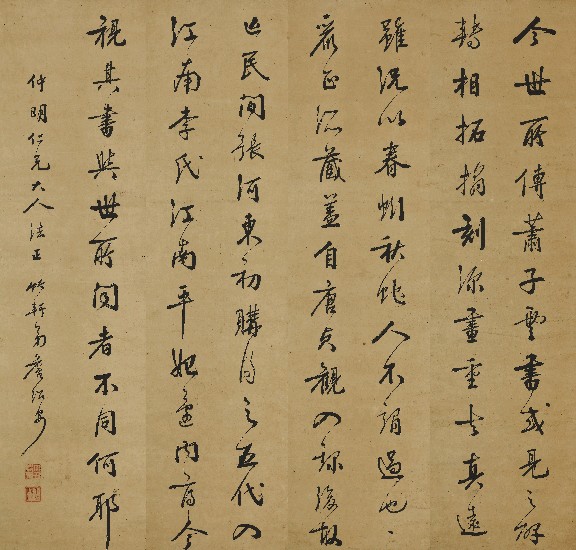 今世所傳蕭子雲書或見之
轉相拓搨刻深畫重去真遠
雖況以春蚓秋蛇人不謂過也
嚴正藏蓋自唐貞觀入錄後散
亡民間張河東初購得之五代入
江南李氏江南平內府今
視其書與世所聞者不同何耶
仲明仁兄大人法正 竹軒弟詹